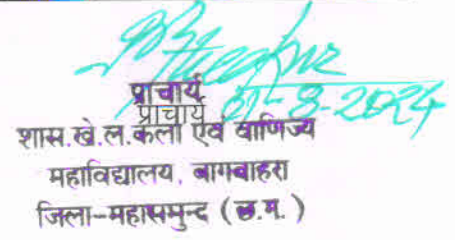 प्राचार्य
प्राचार्य
शास.खे.ल.कला एवं वाणिज्य
महाविद्यालय, बागबाहरा
जिला-महासमुन्द (छ.ग.)